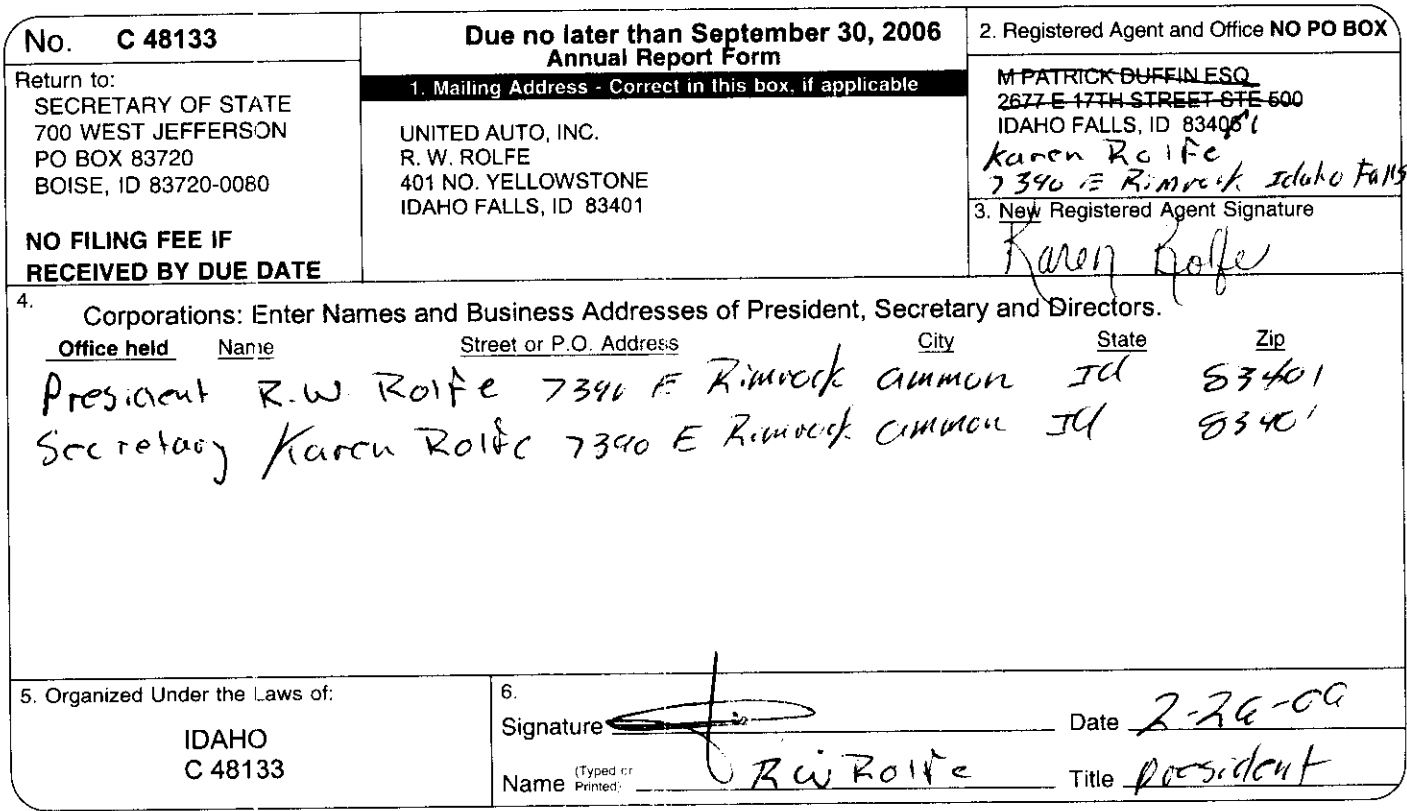 No. C 48133
Return to:
SECRETARY OF STATE
700 WEST JEFFERSON
PO BOX 83720
BOISE, ID 83720-0080
NO FILING FEE IF
RECEIVED BY DUE DATE
Due no later than September 30, 2006
Annual Report Form
1. Mailing Address - Correct in this box, if applicable
UNITED AUTO, INC.
R. W. ROLFE
401 NO. YELLOWSTONE
IDAHO FALLS, ID 83401
2. Registered Agent and Office NO PO BOX
M PATRICK DUFFIN ESQ
2677 E 17TH STREET STE 500
IDAHO FALLS, ID 83401
Karen Rolfe
7390 E Rimrock Idaho Falls
3. New Registered Agent Signature
Karen Rolfe
4. Corporations: Enter Names and Business Addresses of President, Secretary and Directors.
Office held Name Street or P.O. Address City State Zip
President R.W. Rolfe 7390 E Rimrock Ammon Id 83401
Secretary Karen Rolfe 7390 E Rimrock Ammon Id 83401
5. Organized Under the Laws of:
IDAHO
C 48133
6.
Signature Date
Name (Typed or Printed) RW Rolfe Title president